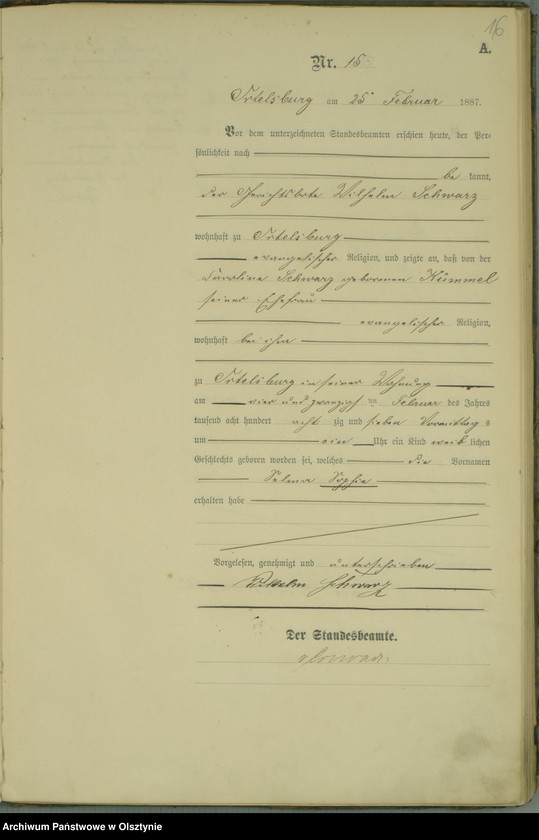 16
A.
Nr. 15
Ortelsburg am 25ᵗ Februar 1887.
Vor dem unterzeichneten Standesbeamten erschien heute, der Per-
sönlichkeit nach
be kannt,
der Gerichtsbote Wilhelm Schwarz
wohnhaft zu Ortelsburg
evangelischer Religion, und zeigte an, daß von der
Karoline Schwarz geborenen Kümmel
seiner Ehefrau
evangelischer Religion,
wohnhaft bei ihm
zu Ortelsburg in seiner Wohnung
am vier und zwanzigsten Februar des Jahres
tausend acht hundert acht zig und sieben Vormittag s
um ein Uhr ein Kind weib lichen
Geschlechts geboren worden sei, welches die Vornamen
Selma Sophie
erhalten habe
Vorgelesen, genehmigt und unterschrieben
Wilhelm Schwarz
Der Standesbeamte.
Archiwum Państwowe w Olsztynie